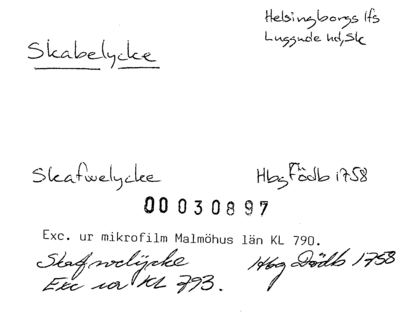 Helsingborgs lfs
Luggude hd, Sk
Skabelycke
Skafwelycke Hbg Födb 1758
00 030897
Exc. ur mikrofilm Malmöhus län KL 790.
Skafwelÿcke Hbg Dödb 1758
Exc ur KL 793.